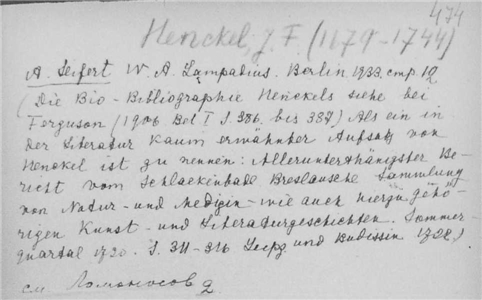 474
Henckel, J. F. (1179-1744)
A. Seifert W. A. Lampadius. Berlin 1933. cmp. 12
(Die Bio-Bibliographie Henckels siehe bei
Ferguson /1906 Bd I S. 386. bis 387) Als ein in
der Literatur kaum erwähnter Aufsatz von
Henckel ist zu nennen: Allerunterthänigster Be-
richt vom Schlackenbade Breslausche Sammlung
von Natur- und Medizin- wie auch hierzu gehö-
rigen Kunst- und Literaturgeschichten. Sommer-
quartal 1720. S. 311-316 Leipz. und Budissin 1722.)
см Ломоносов 2